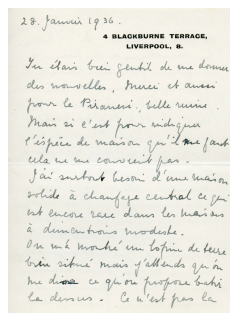 28. Janvier 1936.
4 BLACKBURNE TERRACE,
LIVERPOOL, 8.
Tu étais bien gentil de me donner
des nouvelles, Merci et aussi
pour le Piranesi, belle ruine.
Mais si c'est pour indiquer
l'espèce de maison qu'il me faut
cela ne me convient pas.
J'ai surtout besoin d'une maison
solide à chaufage central ce qui
est encore rare dans les maisons
à dimentions modeste.
On m'a montré un lopin de terre
bien situé mais j'attends qu'on
me dise ce qu'on propose batir
la dessus. Ce n'est pas la